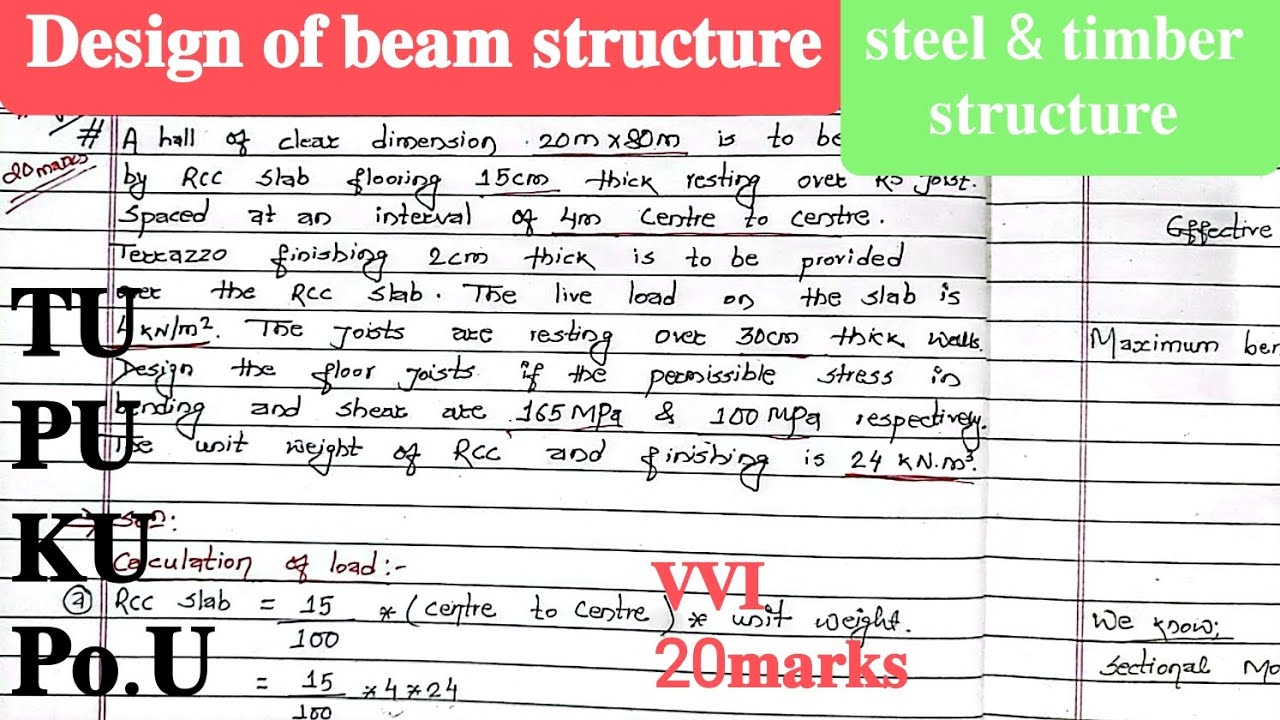 Design of beam structure
steel & timber
structure
# A hall of clear dimension 20m x 80m is to be
20 marks
by RCC slab flooring 15cm thick resting over RS joist.
spaced at an interval of 4m centre to centre.
Terrazzo finishing 2cm thick is to be provided
over the RCC slab. The live load on the slab is
4 kN/m². The joists are resting over 30cm thick walls.
Design the floor joists if the permissible stress in
bending and shear are 165 MPa & 100 MPa respectively.
The unit weight of RCC and finishing is 24 kN.m³.
TU
PU
KU
Po.U
Calculation of load:-
a RCC slab = 15/100 * (centre to centre) * unit weight.
= 15/100 * 4 * 24
VVI
20marks
Effective
Maximum ben
We know;
Sectional Mo